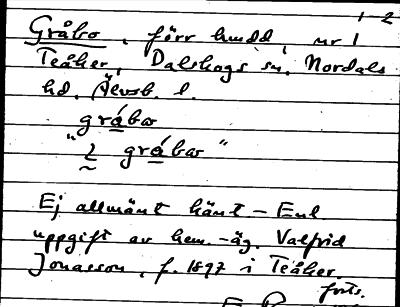 1-2
Gråbo, förr hudd, nr 1
Teåker, Dalskogs sn, Nordals
hd, Älvsb. l.
gråbω
"ɩ̰ gråbω"
Ej allmänt känt - Enl.
uppgift av hem.-äg. Valfrid
Jonasson, f. 1897 i Teåker.
forts.